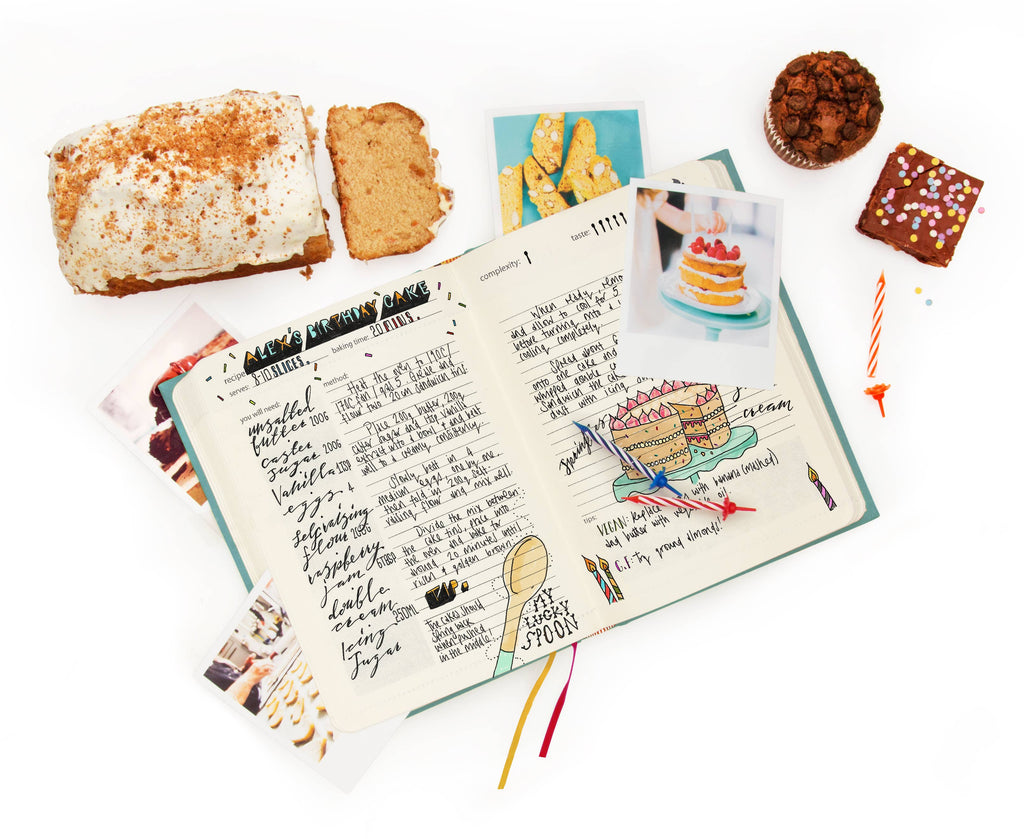 recipe: ALEX'S BIRTHDAY CAKE
serves: 8-10 SLICES.
baking time: 20 MINS.
you will need:
unsalted
butter 200G
caster
sugar 200G
Vanilla 1TSP
eggs 4
self raising
flour 200G
raspberry
jam 6TBSP
double
cream 250ML
Icing
Sugar
method:
Heat the oven to 190C/
170C Fan / gas 5. Grease and
flour two 20cm sandwich tins
Place 200g butter, 200g
caster sugar and 1tsp vanilla
extract into a bowl and beat
well to a creamy consistency.
Slowly beat in 4
medium eggs, one by one
then fold in 200g self-
raising flour and mix well.
Divide the mix between
the cake tins, place into
the oven and bake for
around 20 minutes until
risen & golden brown.
TIP:
The cakes should
spring back
when pushed
in the middle!
MY
LUCKY
SPOON
complexity:
taste:
When ready, remo
and allow to cool for 5
before turning into
cooling completely.
Spread about 6
onto one cake and
whipped double
Sandwich the cake
dust with icing
cream
tips:
VEGAN: Replace with banana (mashed)
and butter with oil!
G.F: Try ground almonds!